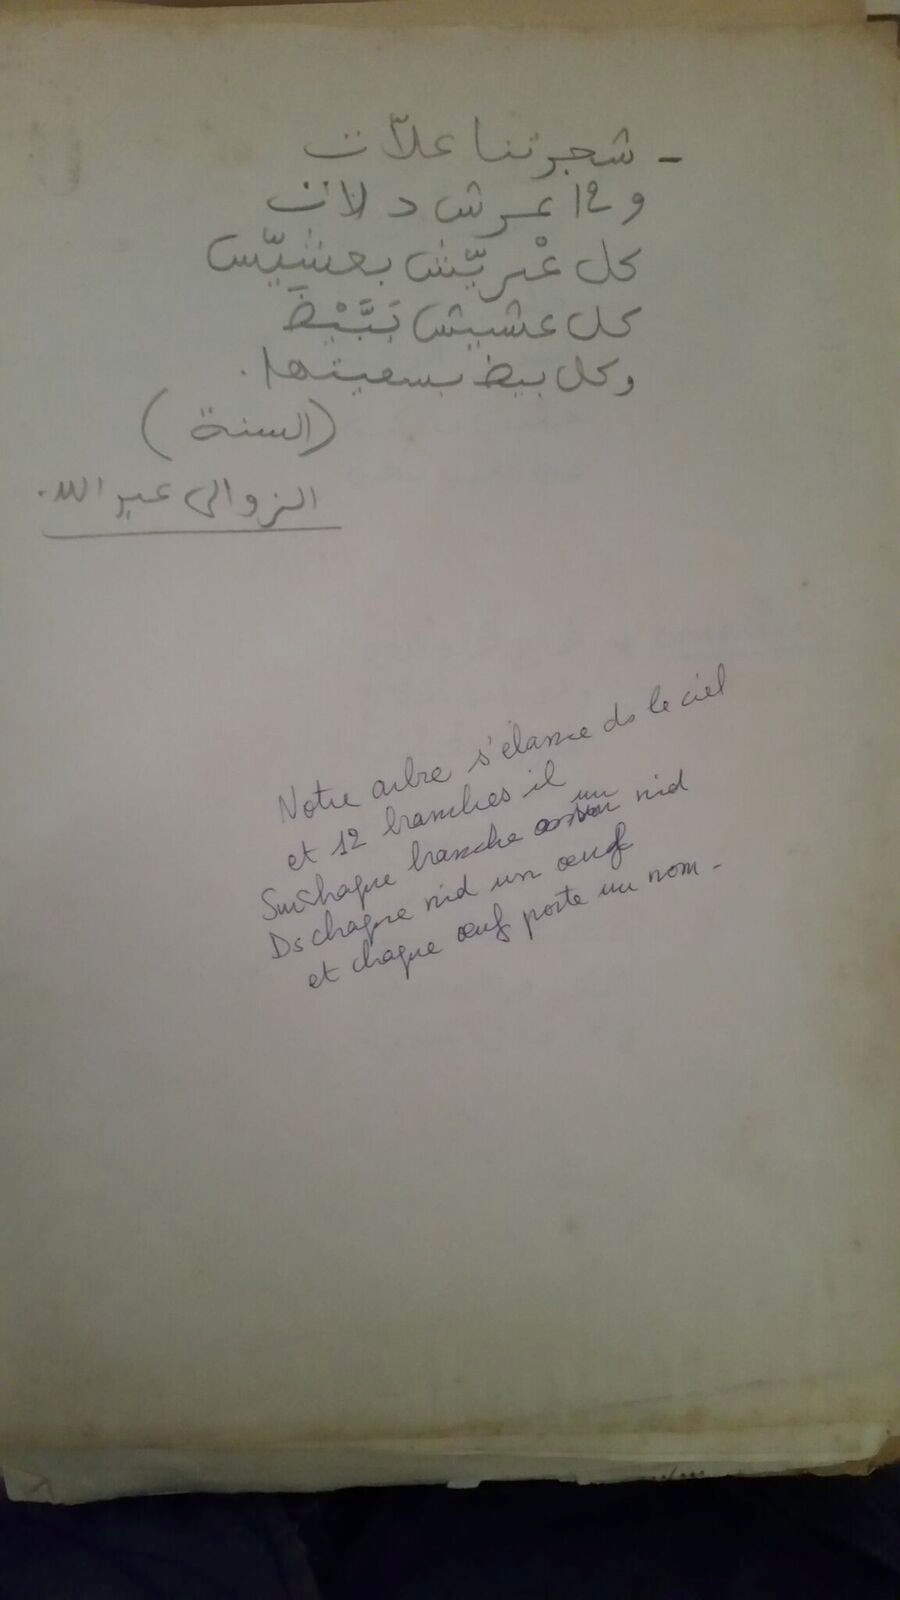 - شجرتنا علاّت
و 12 عرش دلات
كل عْريّش بعشيّش
كل عشيش تَبَّيْظَ
وكل بيظ بسميتها.
(السنة)
الزوالي عبد الله.
Notre arbre s'élance ds le ciel
et 12 branches il
Sur chaque branche un nid
Ds chaque nid un œuf
et chaque œuf porte un nom -